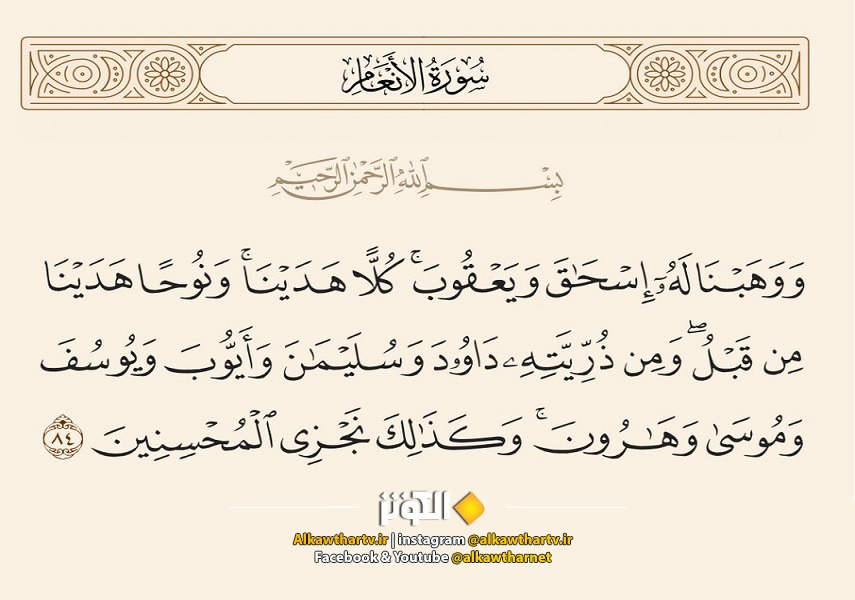 سُورَةُ الأَنْعَامِ
بِسْمِ ٱللَّهِ ٱلرَّحْمَٰنِ ٱلرَّحِيمِ
وَوَهَبْنَا لَهُۥٓ إِسْحَٰقَ وَيَعْقُوبَ ۚ كُلًّا هَدَيْنَا ۚ وَنُوحًا هَدَيْنَا
مِن قَبْلُ ۖ وَمِن ذُرِّيَّتِهِۦ دَاوُۥدَ وَسُلَيْمَٰنَ وَأَيُّوبَ وَيُوسُفَ
وَمُوسَىٰ وَهَٰرُونَ ۚ وَكَذَٰلِكَ نَجْزِى ٱلْمُحْسِنِينَ ٨٤
الكوثر
Alkawthartv.ir | instagram @alkawthartv.ir
Facebook & Youtube @alkawtharnet